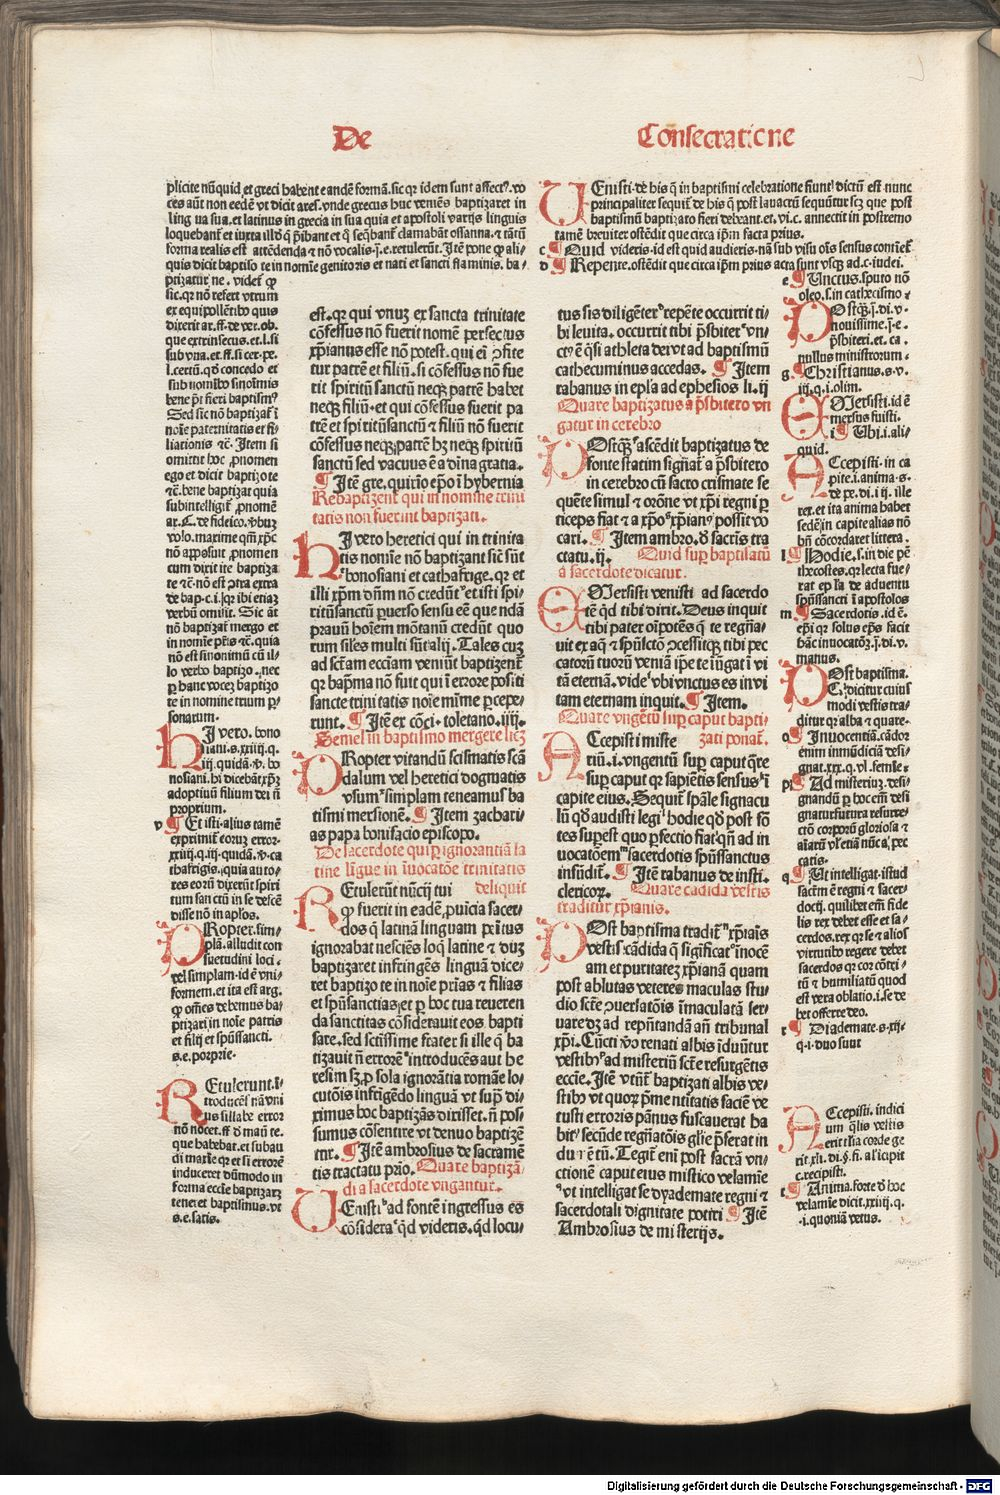 De
Consecratione
plicite nũquid et greci habent eandẽ formã. sic qꝛ idem sunt affectꝰ. vo
ces aũt non eedẽ vt dicit ares. vnde grecus huc veniẽs baptizaret in
lingua sua. et latinus in grecia in sua quia et apostoli varijs linguis
forma realis est attẽdenda ⁊ nõ vocalis
quis dicit baptiso te in nomĩe genitoris et nati et sancti flaminis. ba⸗
ptizatur ne. videt̃ ꝙ
sic. qꝛ nõ refert vtrum
ex equipollẽtibꝰ quis
que extrinsecus. et. l. si
sub vna. et. ff. si cer. pe.
l. certũ. qḋ concedo et
bene pt̃ fieri baptismꝰ
Sed sic nõ baptizat̃ ĩ
noĩe paternitatis et fi⸗
liationis ⁊c̃. Item si
omittit hoc ꝓnomen
ego et dicit baptizo te
⁊c̃. bene baptizat quia
subintelligit̃ ꝓnomẽ
nõ apposuit ꝓnomen
cum dixit ite baptiza
te ⁊c̃. nõ est ꝯtra extra
verbũ omisit. Sic aũt
nõ baptizat̃ mergo et
in nomĩe pr̃is ⁊c̃. quia
nõ est sinonimũ cũ il⸗
lo verbo baptizo. nec
ꝑ hanc vocez baptizo
te in nomine trium ꝑ⸗
sonarum.
HI vero. bono
siani. s. xxiiij. q.
nosiani. hi dicebãt xp̃ꝫ
adoptiuũ filium dei ñ
proprium.
v ¶ Et isti. alius tamẽ
exprimit̃ eorũ error.
thafrigis. quia auto⸗
res eorũ dixerũt spiri
tum sanctũ in se descẽ
disse nõ in aplos.
PRopter. sim⸗
plã. alludit con
suetudini loci.
vel simplam. id ẽ vni⸗
formem. et ita est arg.
ꝙ oĩnes debemus ba⸗
ptizari in noĩe patris
et filij et spũssancti.
s. e. porprie.
REtulerunt. ĩ⸗
troducẽs nã vni
us sillabe error
nõ nocet. ff. ḋ manũ te.
que habebat. et subau
di maxĩe qꝛ et si errorẽ
induceret dũmodo in
forma eccl̃ie baptizarꝫ
tenet et baptismus. vt
s. e. satis.
est. qꝛ qui vnuz ex sancta trinitate
cõfessus nõ fuerit nomẽ perfectus
xp̃ianus esse nõ potest. qui eĩ ꝯfite
tur patrẽ et filiũ. si cõfessus nõ fue
rit spiritũ sanctũ neqꝫ patrẽ habet
neqꝫ filiũ. et qui cõfessus fuerit pa
trẽ et spiritũsanctũ ⁊ filiũ nõ fuerit
cõfessus neqꝫ patrẽ hꝫ neqꝫ spiritũ
sanctũ sed vacuus ẽ a diuina gratia.
¶ Itẽ gre. quirino ep̃o ĩ hybernia
Rebaptizent̃ qui in nomine trini
tatis non fuerint baptizati.
HI vero heretici qui in trinita
tis nomĩe nõ baptizant̃ sic sũt
bonosiani et cathafrige. qꝛ et
illi xp̃m dñm nõ credũt et isti spi⸗
ritũsanctũ ꝑuerso sensu eẽ que ndã
prauũ hoĩem mõtanũ credũt quo
rum siĩles multi sũt alij. Tales cuꝫ
ad sctam eccl̃iam veniũt baptizent̃
qꝛ bap̃ma nõ fuit qui ĩ errore positi
sancte trinitatis noĩe mĩme ꝑcepe⸗
runt. ¶ Itẽ ex cõci. toletano. iiij.
Semel in baptismo mergere licꝫ
PRopter vitandũ scismatis scã
dalum vel heretici dogmatis
vsum simplam teneamus ba
tismi mersionẽ. ¶ Item zachari⸗
as papa bonifacio episcopo.
De sacerdote qui ꝑ ignorantiã la
tine lĩgue in ĩuocatõe trinitatis
deliquit
REtulerũt nũcij tui
ꝙ fuerit in eadẽ ꝓuĩcia sacer⸗
dos q̃ latinã linguam penitus
ignorabat nesciẽs loq̃ latine ⁊ duꝫ
baptizaret infringẽs linguã dice⸗
ret baptizo te in noĩe pr̃ias ⁊ filias
et spũsanctias. et ꝑ hoc tua reueren
da sanctitas cõsiderauit eos bapti
sare. sed sctissime frater si ille q̃ ba
tizauit ñ errorẽ introducẽs aut he
resim sꝫ ꝓ sola ignorãtia romãe lo⸗
cutõis infrĩgẽdo linguã vt supͣ di⸗
ximus hoc baptizãs dixisset. ñ pos
sumus cõsentire vt denuo baptizẽ
tur. ¶ Itẽ ambrosius de sacramẽ
tis tractatu prĩo. Quare baptizã⸗
di a sacerdote vngantur.
UEnisti ad fontẽ ingressus es
cõsidera qḋ videris. qḋ locu⸗
UEnisti. de his q̃ in baptismi celebratione fiunt dictũ est nunc
principaliter sequit̃ de his q̃ post lauacrũ sequũtur scꝫ que post
baptismũ baptizato fieri debeant. et. vi. c. annectit in postremo
tamẽ breuiter ostẽdit que circa ip̃m facta prius.
c ¶ Quid videris. id est quid audieris. nã sub visu oẽs sensus cõtinet̃
d ¶ Repente. ostẽdit que circa ip̃m prius acta sunt vsqꝫ ad. c. iudei.
tus sis diligẽter repẽte occurrit ti⸗
bi leuita. occurrit tibi p̃sbiter vn⸗
ctꝰ ẽ q̃si athleta dei vt ad baptismũ
cathecuminus accedas. ¶ Item
rabanus in ep̃la ad ephesios li. ij
Quare baptizatus a p̃sbitero vn
gatur in cerebro
POstq̃ꝫ ascẽdit baptizatus de
fonte statim signat̃ a p̃sbitero
in cerebro cũ sacro crismate se
quẽte simul ⁊ orõne vt xp̃i regni ꝑ
ticeps fiat ⁊ a xp̃o xp̃ianꝰ possit vo
cari. ¶ Item ambro. ḋ sacris tra
ctatu. ij. Quid suꝑ baptisatũ
a sacerdote dicatur.
MErsisti venisti ad sacerdo
tẽ qḋ tibi dixit. Deus inquit
tibi pater oĩpotẽs q̃ te regña⸗
uit ex aq̃ ⁊ spũscto ꝯcessitqꝫ tibi pec
catorũ tuorũ veniã ip̃e te iũgat ĩ vi
tã eternã. vide vbi vnctus es in vi
tam eternam inquit. ¶ Item.
Quare vngẽtũ suꝑ caput bapti⸗
zati ponat̃.
ACcepisti miste
riũ. i. vngentũ suꝑ caput q̃re
suꝑ caput qꝛ sapiẽtis sensus ĩ
capite eius. Sequit̃ spãle signacu
lũ qḋ audisti legi hodie qḋ post fõ
tes suꝑest quo ꝑfectio fiat. qñ ad in
uocatõem sacerdotis spũssanctus
infũdit̃. ¶ Itẽ rabanus de insti.
clericoꝝ. Quare cãdida vestis
traditur xp̃ianis.
POst baptisma tradit̃ xp̃iaĩs
vestis cãdida q̃ significat ĩnocẽ
tiam et puritatez xp̃ianã quam
post ablutas veteres maculas stu⸗
dio scẽ ꝯuersatõis ĩmaculatã ser⸗
uare dꝫ ad rep̃ntandã añ tribunal
xp̃i. Cũcti vo renati albis ĩduũtur
vestibꝰ ad misteriũ scẽ resurgẽtis
eccl̃ie. Itẽ vtũt̃ baptizati albis ve⸗
stibꝰ vt quoꝝ pͥme ntitatis faciẽ ve
tusti erroris pãnus fuscauerat ha
bitꝰ secũde regñatõis glĩe p̃ferat in
dumẽtũ. Tegit̃ enĩ post sacrã vn⸗
ctionẽ caput eius mistico velamĩe
vt intelligat se dyademate regni ⁊
sacerdotali dignitate potiri ¶ Itẽ
Ambrosius de misterijs.
e ¶ Unctus. sputo nõ
oleo. s. in cathecismo.
POstq̃ꝫ. j. di. v.
nouissime. j. e.
p̃sbiteri. et. ca.
nullus ministrorum.
g ¶ Christianus. s. v.
iij. q. i. olim.
MErsisti. id ẽ
mersus fuisti.
i ¶ Ubi. i. ali⸗
quid.
ACcepisti. in ca
pite. i. anima. s.
de pe. di. ij. ille
rex. et ita anima habet
sedẽ in capite alias nõ
bñ cõcordaret littera.
l ¶ Hodie. s. in die pẽ
thecostes. qꝛ lecta fue⸗
rat ep̃la de aduentu
spũssancti ĩ apostolos
m ¶ Sacerdotis. id ẽ
ep̃i qꝛ solus ep̃s facit
hãc inuocatõꝫ. j. di. v.
manus.
POst baptisma.
C. dicitur cuius
modi vestis tra⸗
ditur qꝛ alba ⁊ quare.
o ¶ Innocentiã. cãdor
enim inmũdiciã desi⸗
p ¶ Ad misteriuꝫ. desi⸗
gnandũ ꝑ hoc em̃ desi
gnatur futura resurre⸗
ctio corporũ gloriosa ⁊
catis.
q ¶ Ut intelligat. istud
sactm̃ ẽ regni ⁊ sacer⸗
dotij. quilibet em̃ fide
lis rex debet esse et sa⸗
cerdos. rex qꝛ se ⁊ alios
virtutibꝰ regere debet
tũ ⁊ humiliatũ quod
est vera oblatio. i. se de
bet offerre deo.
r ¶ Diademate. s. xij.
q. i. duo sunt
ACcepisti. indici
um q̃lis vestis
erit tua corde ge
rit. xli. di. §. fi. al̓ icipit
c. recipisti.
t ¶ Anima. forte ḋ hoc
velamĩe dicit. xxiiij. q.
.i. quoniã vetus.
Digitalisierung gefördert durch die Deutsche Forschungsgemeinschaft - DFG